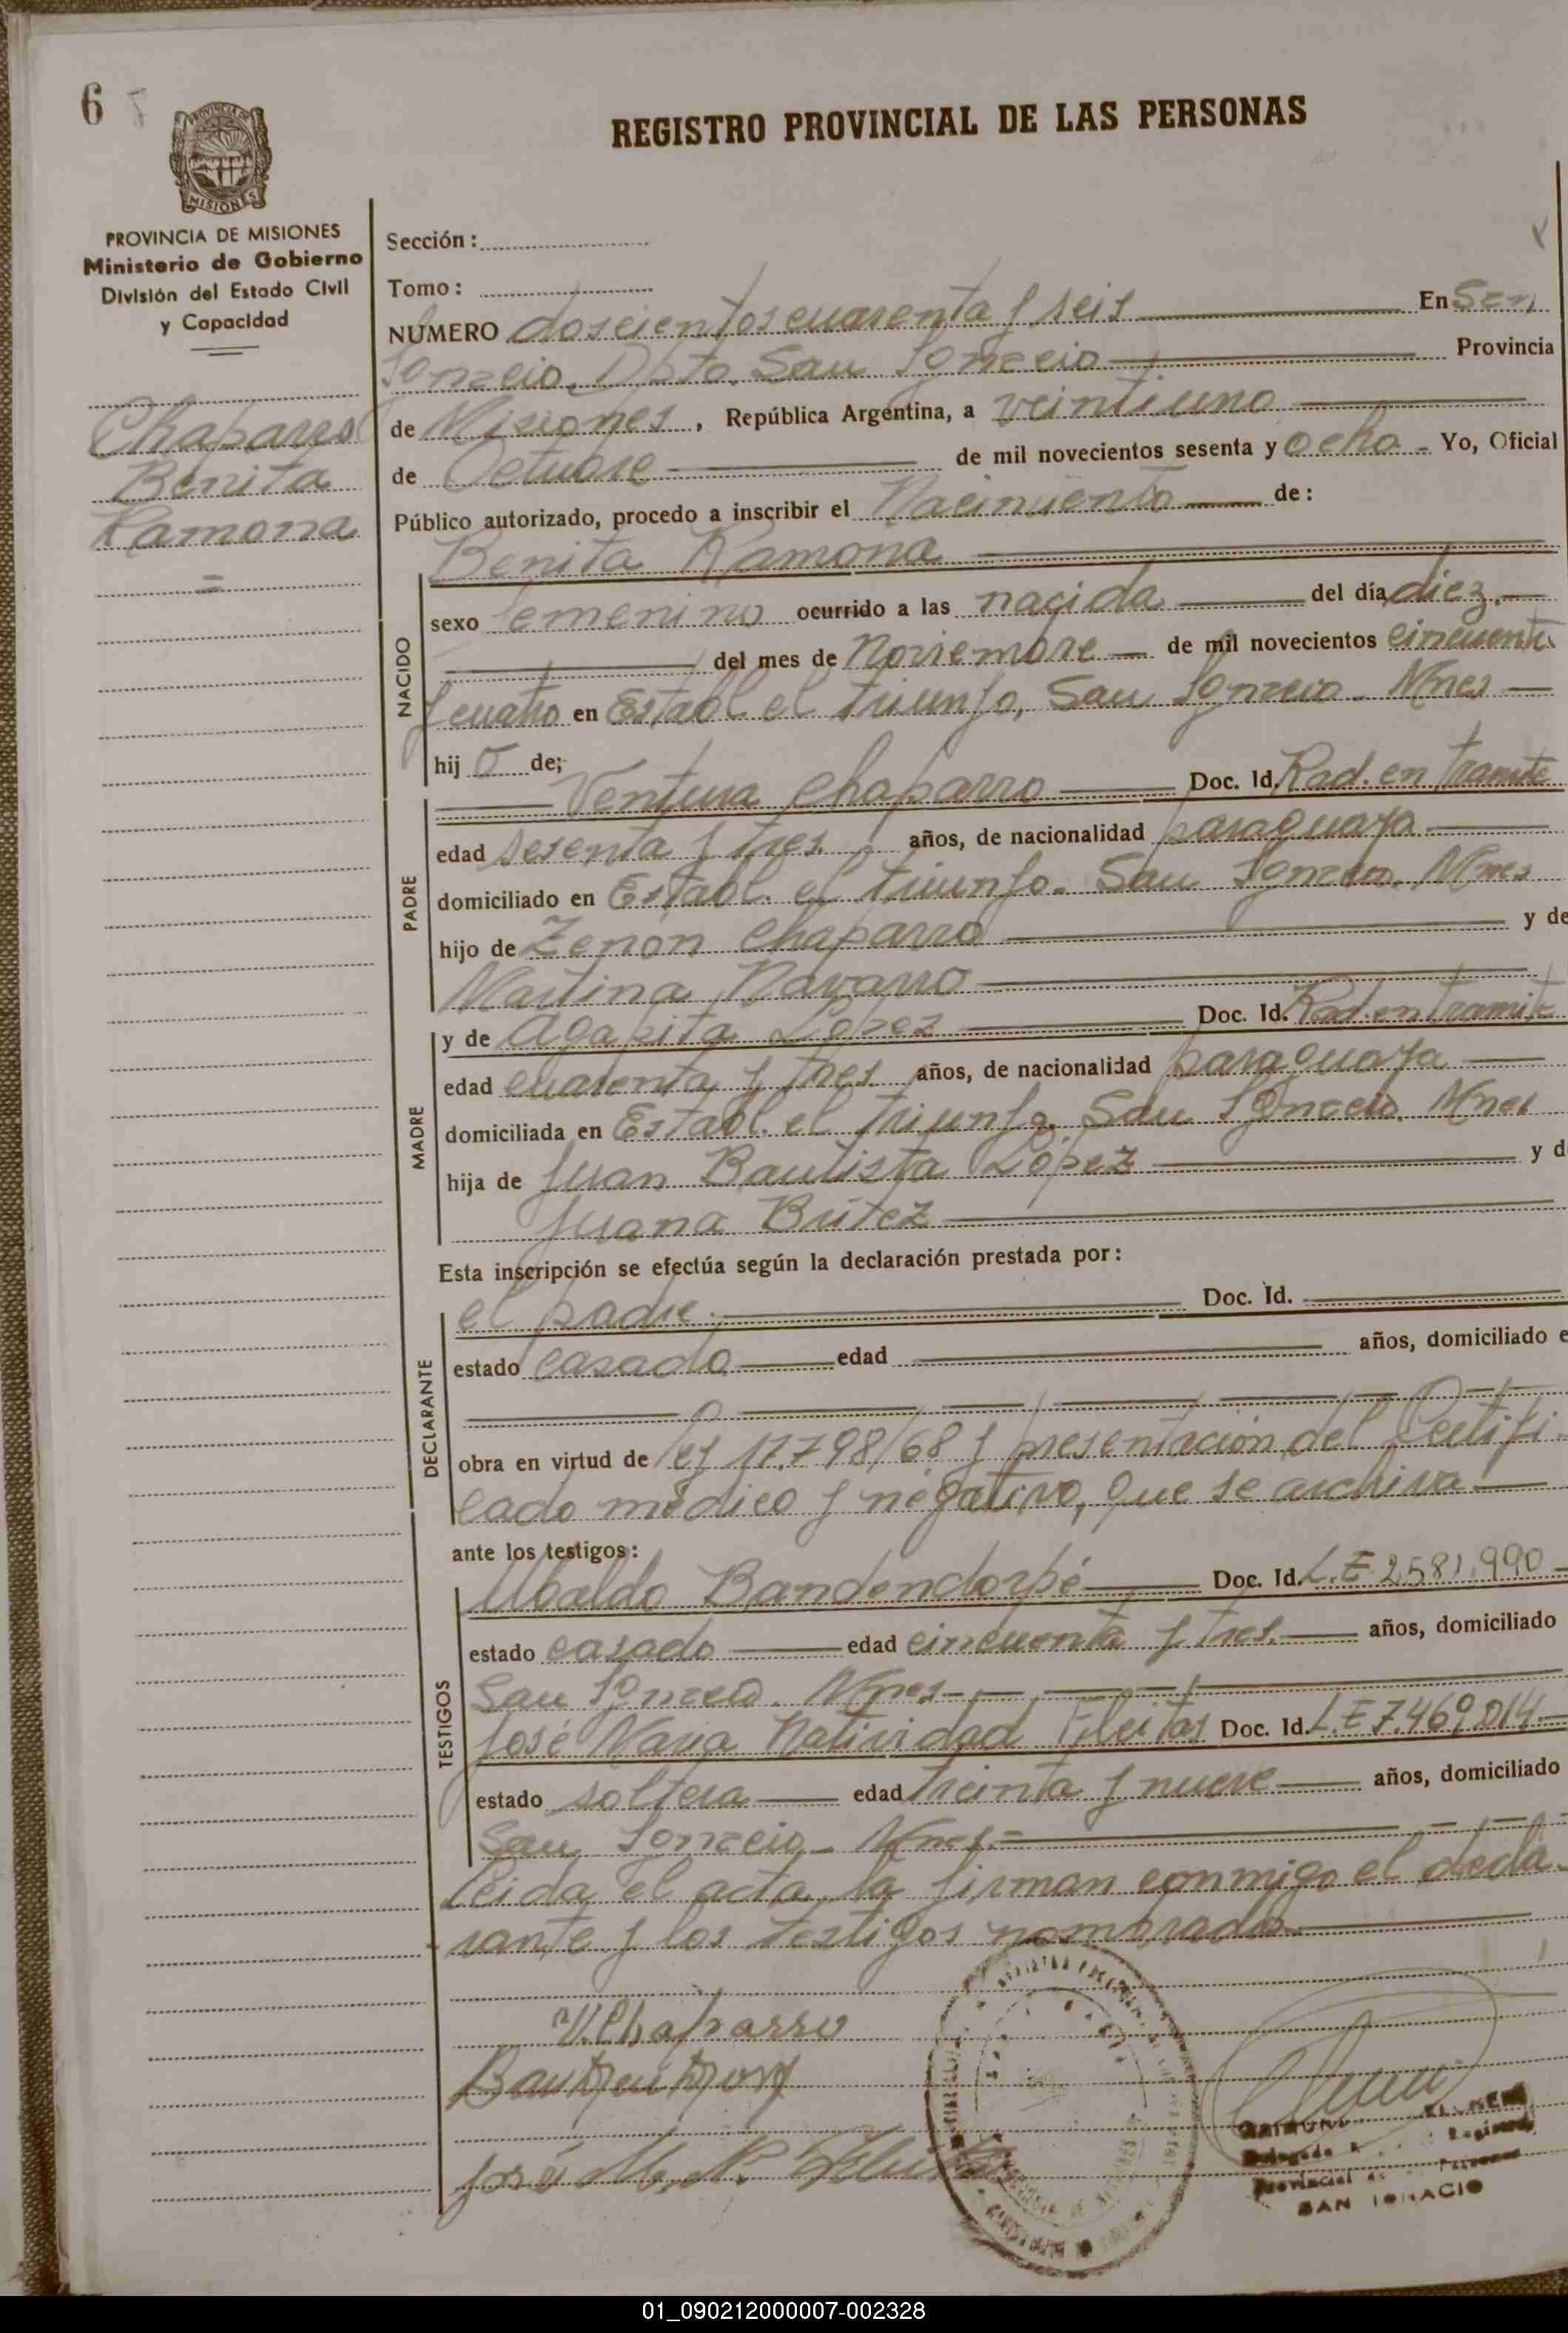 6
REGISTRO PROVINCIAL DE LAS PERSONAS
MISIONES
PROVINCIA DE MISIONES
Ministerio de Gobierno
División del Estado Civil
y Capacidad
Chaparro
Benita
Ramona
Sección:
Tomo:
NUMERO doscientos cuarenta y seis En San
Ignacio, Dpto. San Ignacio Provincia
de Misiones, República Argentina, a veintiuno
de Octubre de mil novecientos sesenta y ocho - Yo, Oficial
Público autorizado, procedo a inscribir el Nacimiento de:
Benita Ramona
NACIDO
sexo femenino ocurrido a las nacida del día diez.
del mes de Noviembre de mil novecientos cincuenta
y cuatro en Establ. el triunfo, San Ignacio - Mnes
hij a de;
PADRE
Ventura Chaparro Doc. Id. Rad. en tramite
edad sesenta y tres años, de nacionalidad paraguaya
domiciliado en Establ. el triunfo. San Ignacio. Mnes
hijo de Zenón Chaparro y de
Martina Navarro
MADRE
y de Agapita López Doc. Id. Rad. en tramite
edad cuarenta y tres años, de nacionalidad paraguaya
domiciliada en Establ. el triunfo, San Ignacio. Mnes
hija de Juan Bautista López y d
Juana Britez
Esta inscripción se efectúa según la declaración prestada por:
DECLARANTE
el padre. Doc. Id.
estado casado edad años, domiciliado e
obra en virtud de ley 17.798/68 y presentación del Certifi
cado médico y negativo, que se archiva.
ante los testigos:
TESTIGOS
Ubaldo Bandendorpé Doc. Id. L.E 2.581.990
estado casado edad cincuenta y tres. años, domiciliado
San Ignacio. Mnes-
José María Natividad Fleitas Doc. Id. L.E 7.469.014
estado soltera edad treinta y nueve años, domiciliado
San Ignacio - Mnes.
Leida el acta, la firman conmigo el decla-
rante y los testigos nombrados.
V. Chaparro
José M. N. Fleitas
Delegado
Provincial
SAN IGNACIO
01_090212000007-002328